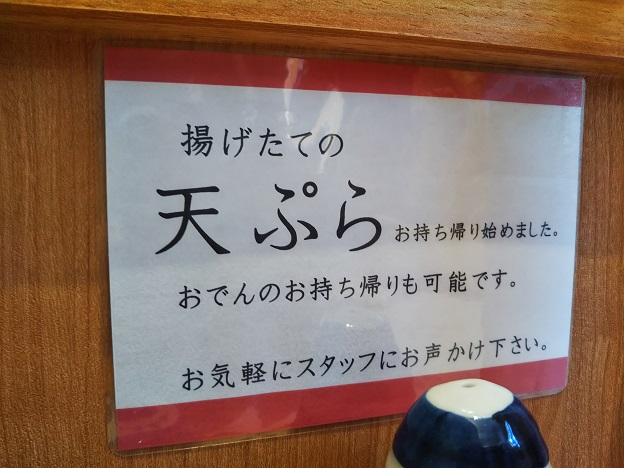 揚げたての
天ぷら お持ち帰り始めました。
おでんのお持ち帰りも可能です。
お気軽にスタッフにお声かけ下さい。